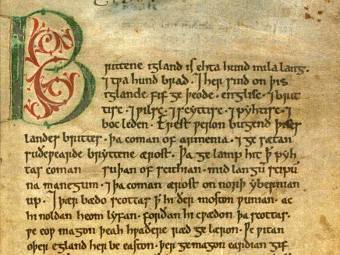 Brittene igland is ehta hund mila lang.
⁊ tƿa hund brad. ⁊ her sind on þis
iglande fif geþeode. englisc. ⁊ brit
tisc. ⁊ ƿilsc. ⁊ scyttisc. ⁊ pyhtisc. ⁊
boc leden. Erest ƿeron bugend þises
landes brittes. þa coman of armenia. ⁊ ge sætan
suðeƿearde bryttene ærost. þa ge lamp hit þ pyh
tas coman suþan of scithian. mid langū scipū
na manegum. ⁊ þa coman ærost on norþ ybernian
up. ⁊ þær bædo scottas þ hi ðer moston ƿunian. ac
hi noldan heom lyfan. forðan hi cƿædon þa scottas.
ƿe eoƿ magon þeah hƿaðere ræd ge læron. ƿe ƿitan
oþer egland her be easton. þer ge magon eardian gif